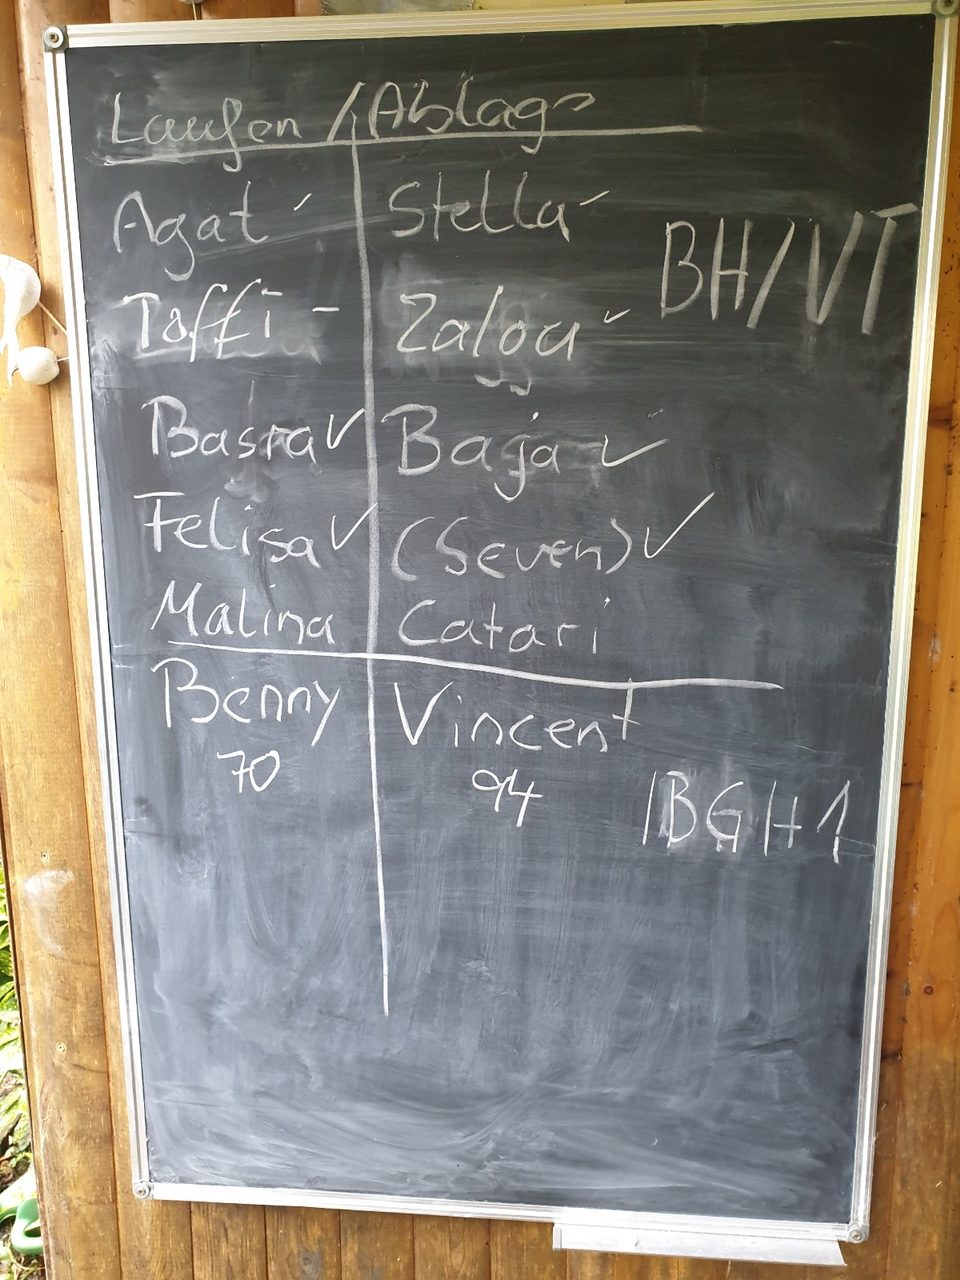 Laufen / Ablage
Agat ✓ Stella ✓
Toffi - Zalou ✓
BH/VT
Basra ✓ Baja ✓
Felisa ✓ (Seven) ✓
Malina Catari
Benny Vincent
70 94
IBGH 1